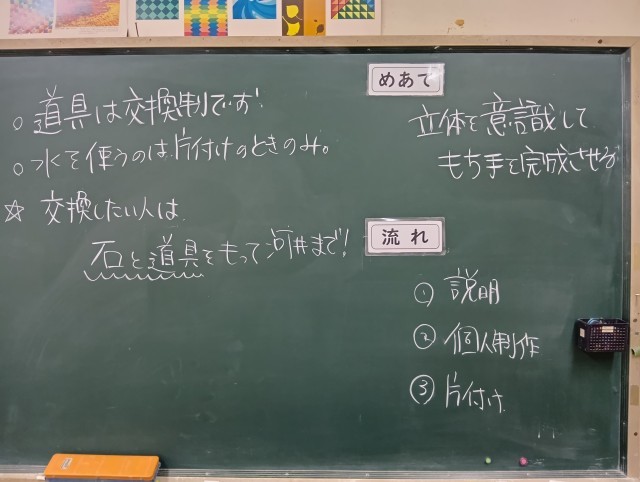 めあて
立体を意識して
もち手を完成させる
流れ
① 説明
② 個人制作
③ 片付け
○ 道具は交換制です!
○ 水を使うのは片付けのときのみ。
☆ 交換したい人は
石と道具をもって河井まで!